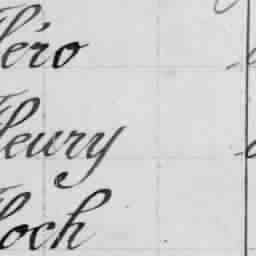 Fléro
Fleury
Floch